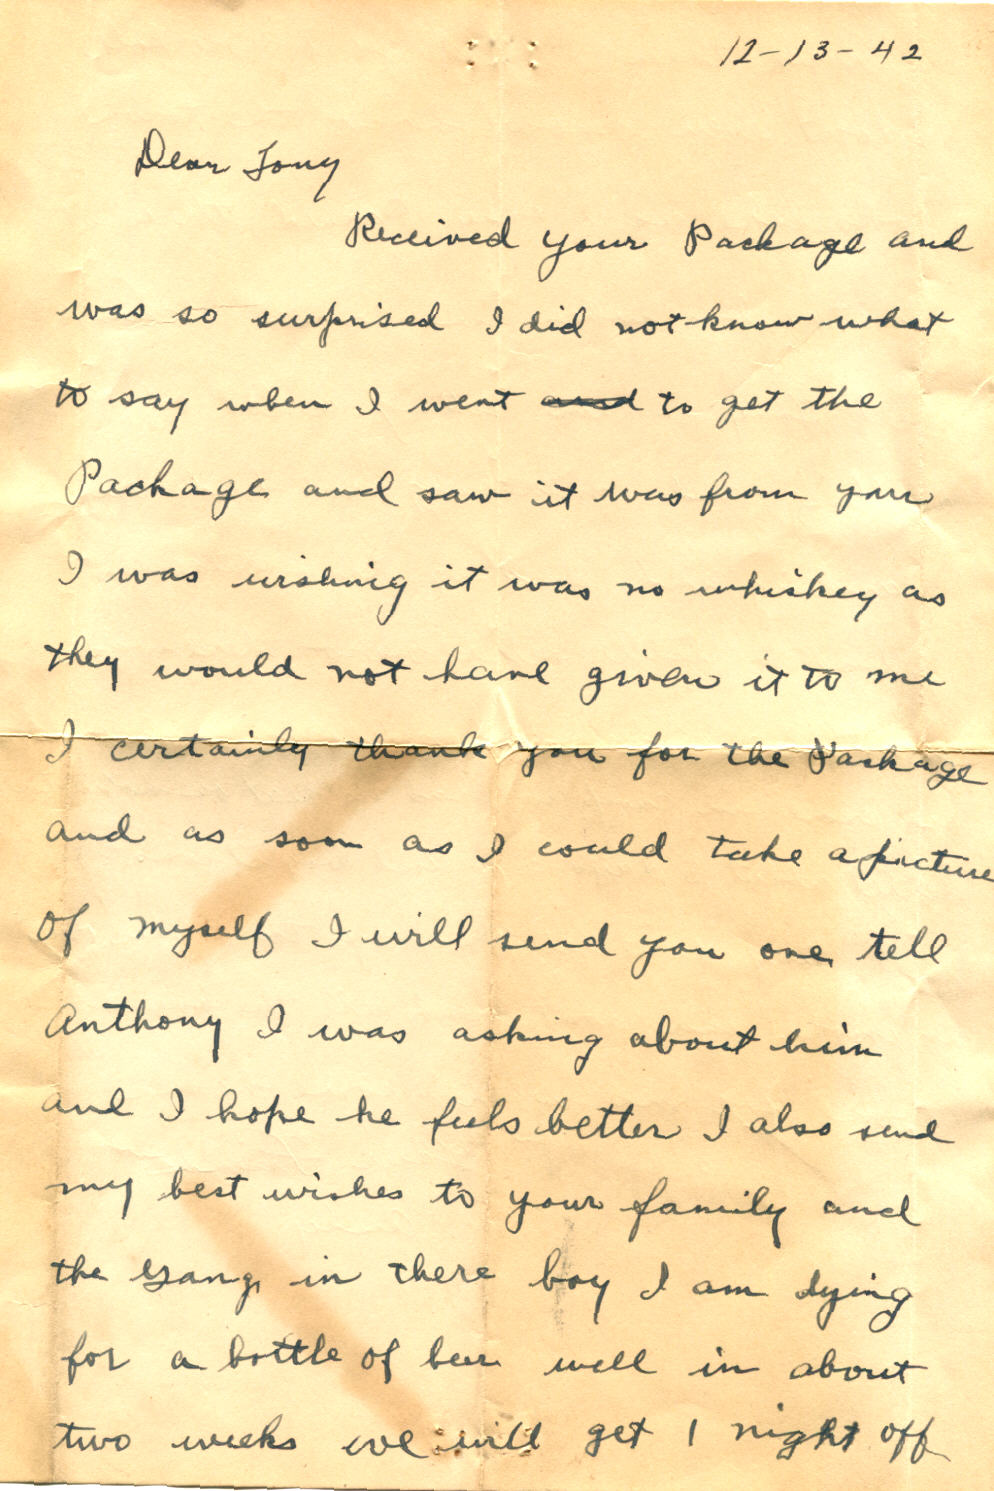 12-13-42
Dear Tony
Received your Package and
was so surprised I did not know what
to say when I went and to get the
Package and saw it was from you
I was wishing it was no whiskey as
they would not have given it to me
I certainly thank you for the Package
and as soon as I could take a picture
of myself I will send you one, tell
Anthony I was asking about him
and I hope he feels better I also send
my best wishes to your family and
the gang, in there boy I am dying
for a bottle of beer well in about
two weeks we will get 1 night off